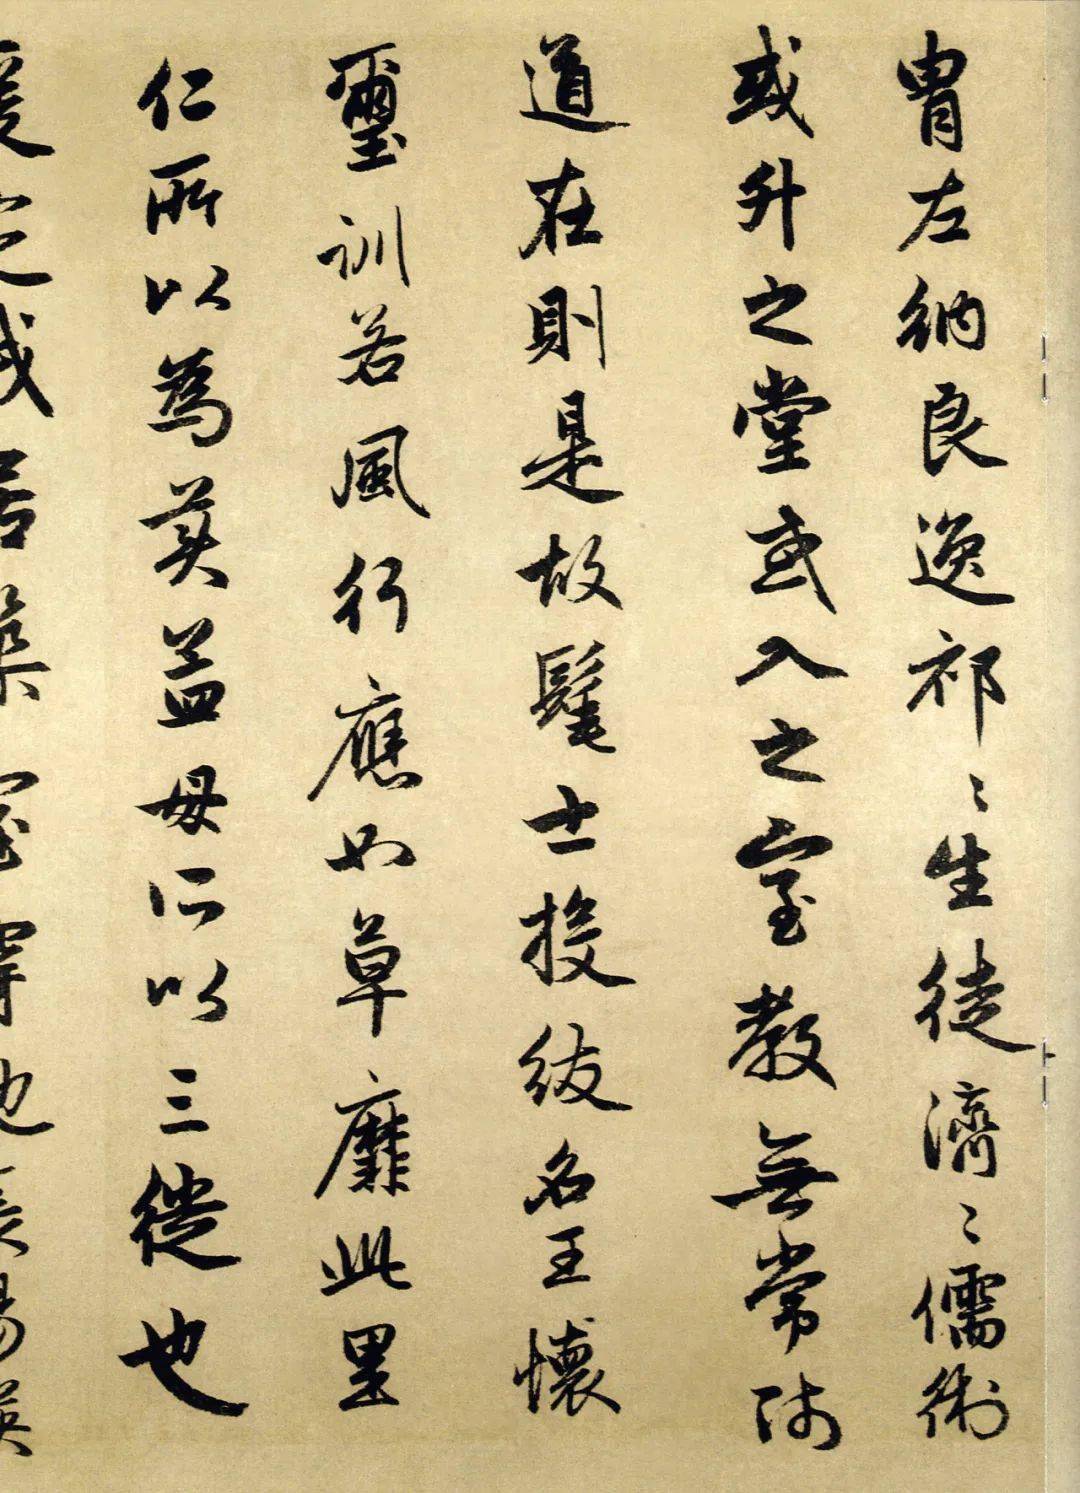 胄左納良逸祁〻生徒濟〻儒術
或升之堂或入之室教無常師
道在則是故髦士投紱名王懷
璽訓若風行應如草靡此里
仁所以為美孟母所以三徙也
爰定我居築室穿池長楊映